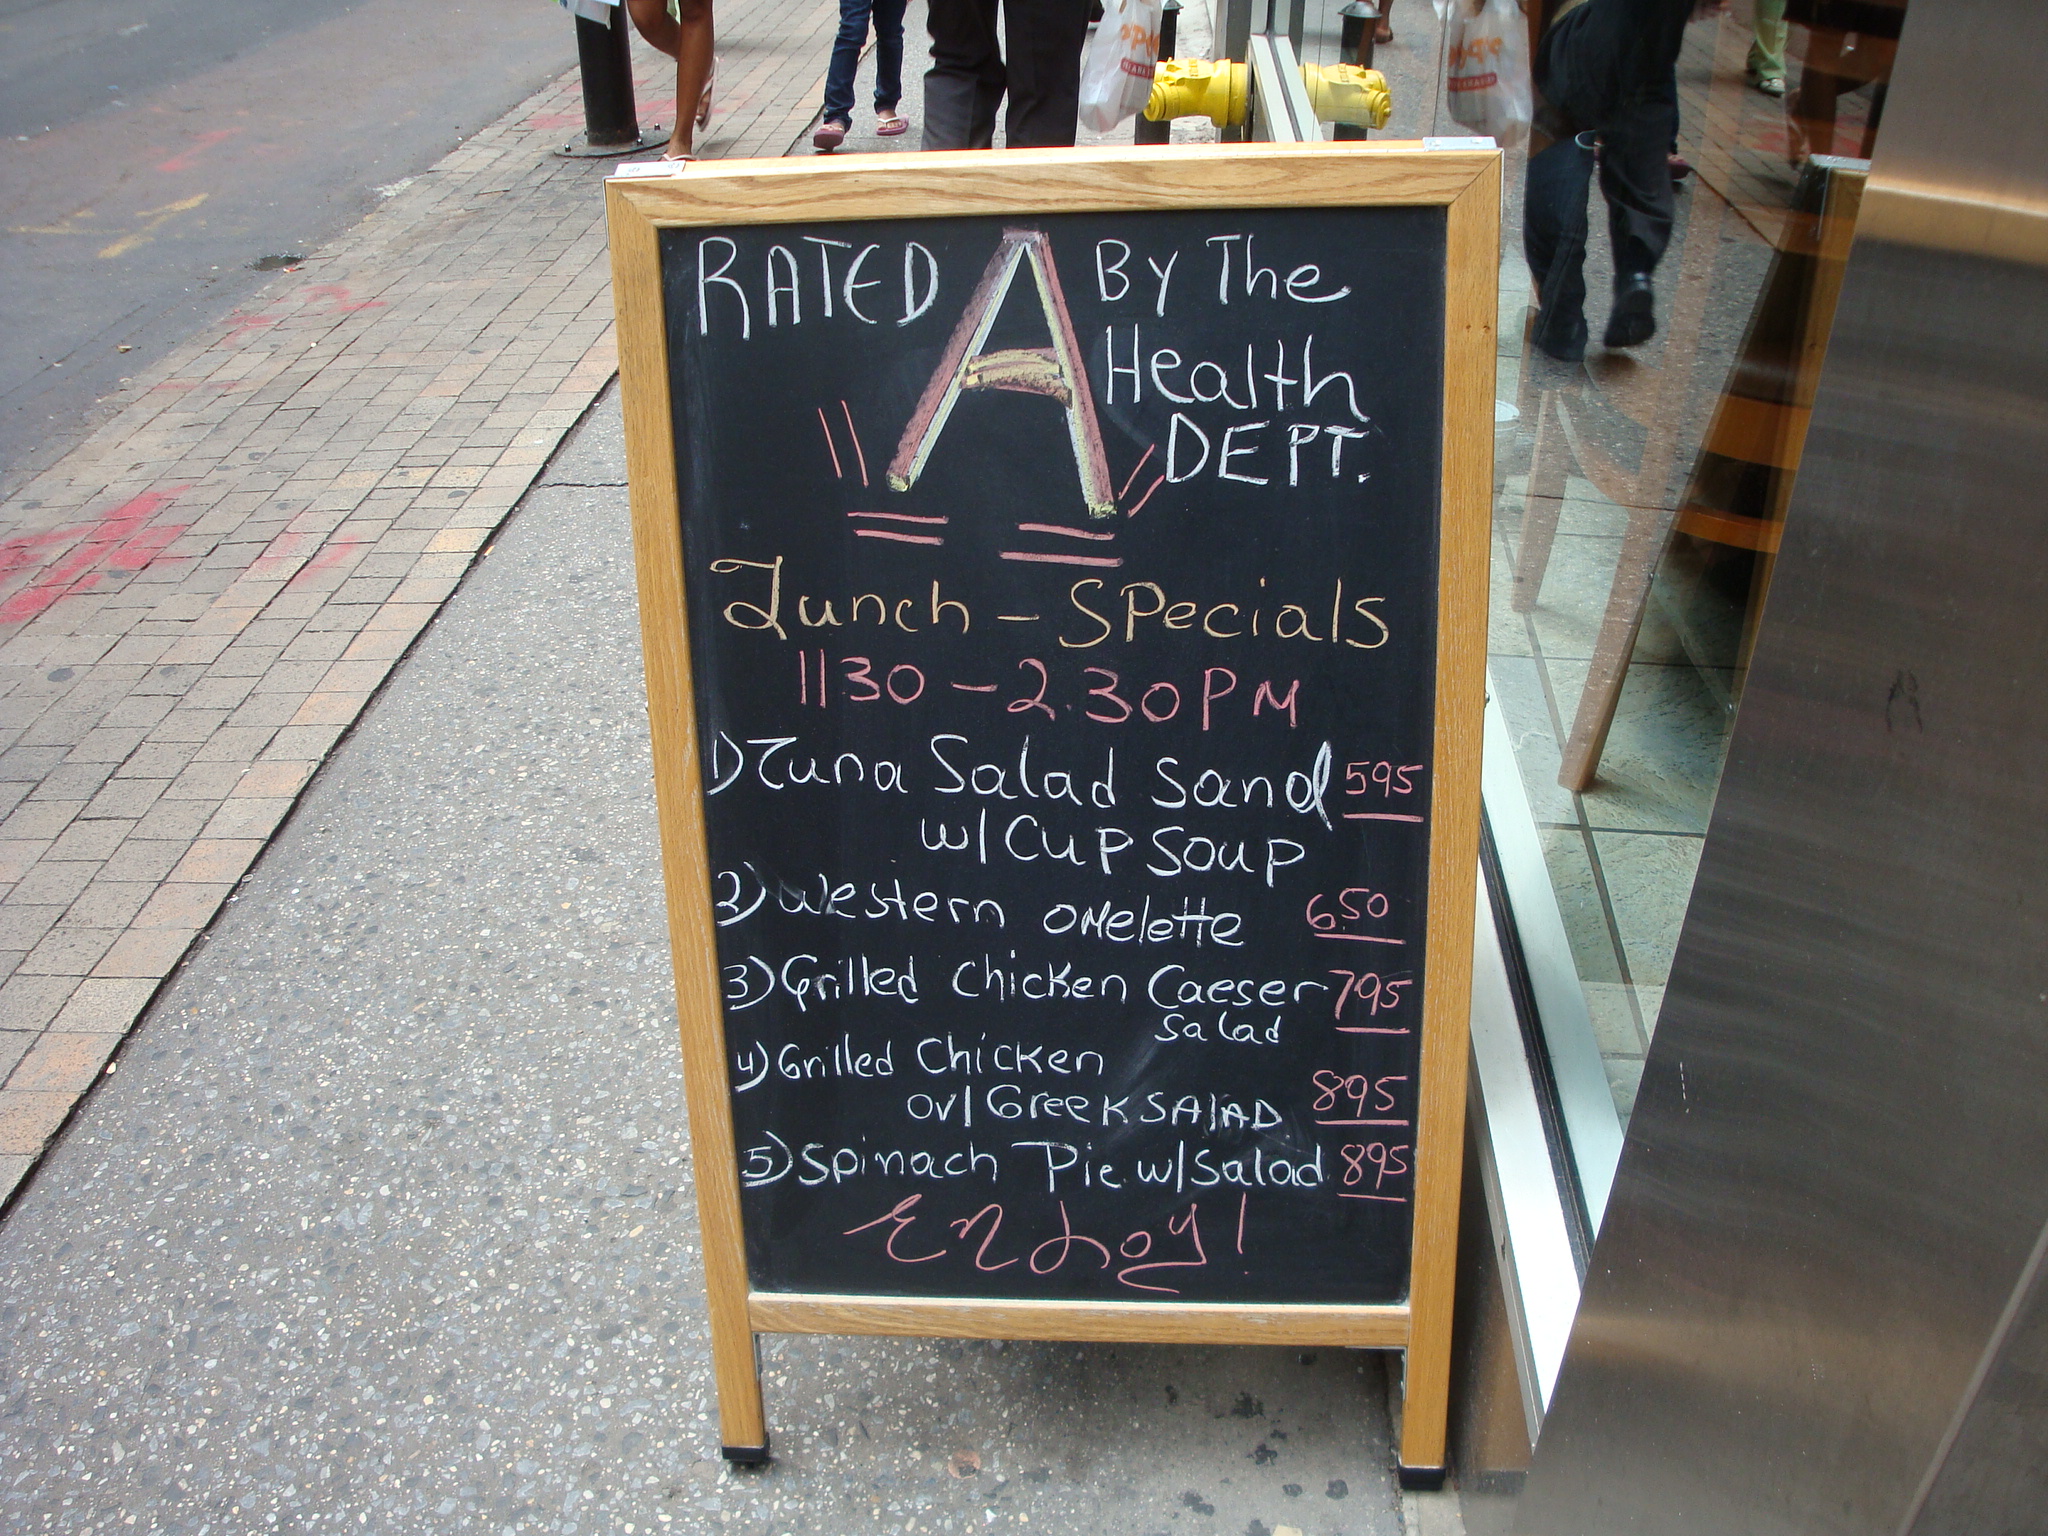 RATED A BY The
Health
DEPT.
Lunch - SPecials
1130 - 2.30 PM
1) Tuna Salad Sand 595
w/ Cup Soup
2) Western omelette 650
3) Grilled Chicken Caeser 795
Salad
4) Grilled Chicken
ov/ Greek SAlAD 895
5) Spinach Pie w/ Salad 895
EnJoy!